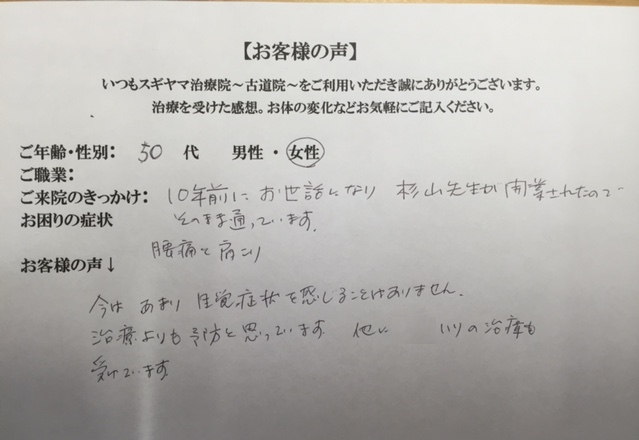 【お客様の声】
いつもスギヤマ治療院～古道院～をご利用いただき誠にありがとうございます。
治療を受けた感想。お体の変化などお気軽にご記入ください。
ご年齢・性別： 50 代 男性・女性
ご職業：
ご来院のきっかけ： 10年前にお世話になり 杉山先生が開業されたので
お困りの症状 そのまま通っています。
腰痛と肩こり
お客様の声↓
今はあまり自覚症状を感じることはありません。
治療よりも予防と思っています 他に の治療も
受けています